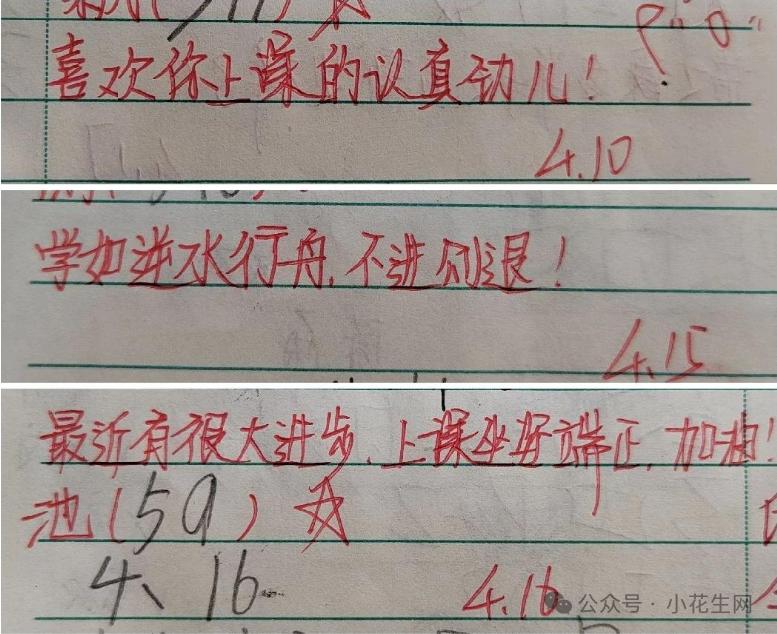 喜欢你上课的认真劲儿！
4.10
学如逆水行舟，不进则退！
4.15
最近有很大进步，上课坐姿端正，加油！
池（59）
4、16
4.16
公众号·小花生网